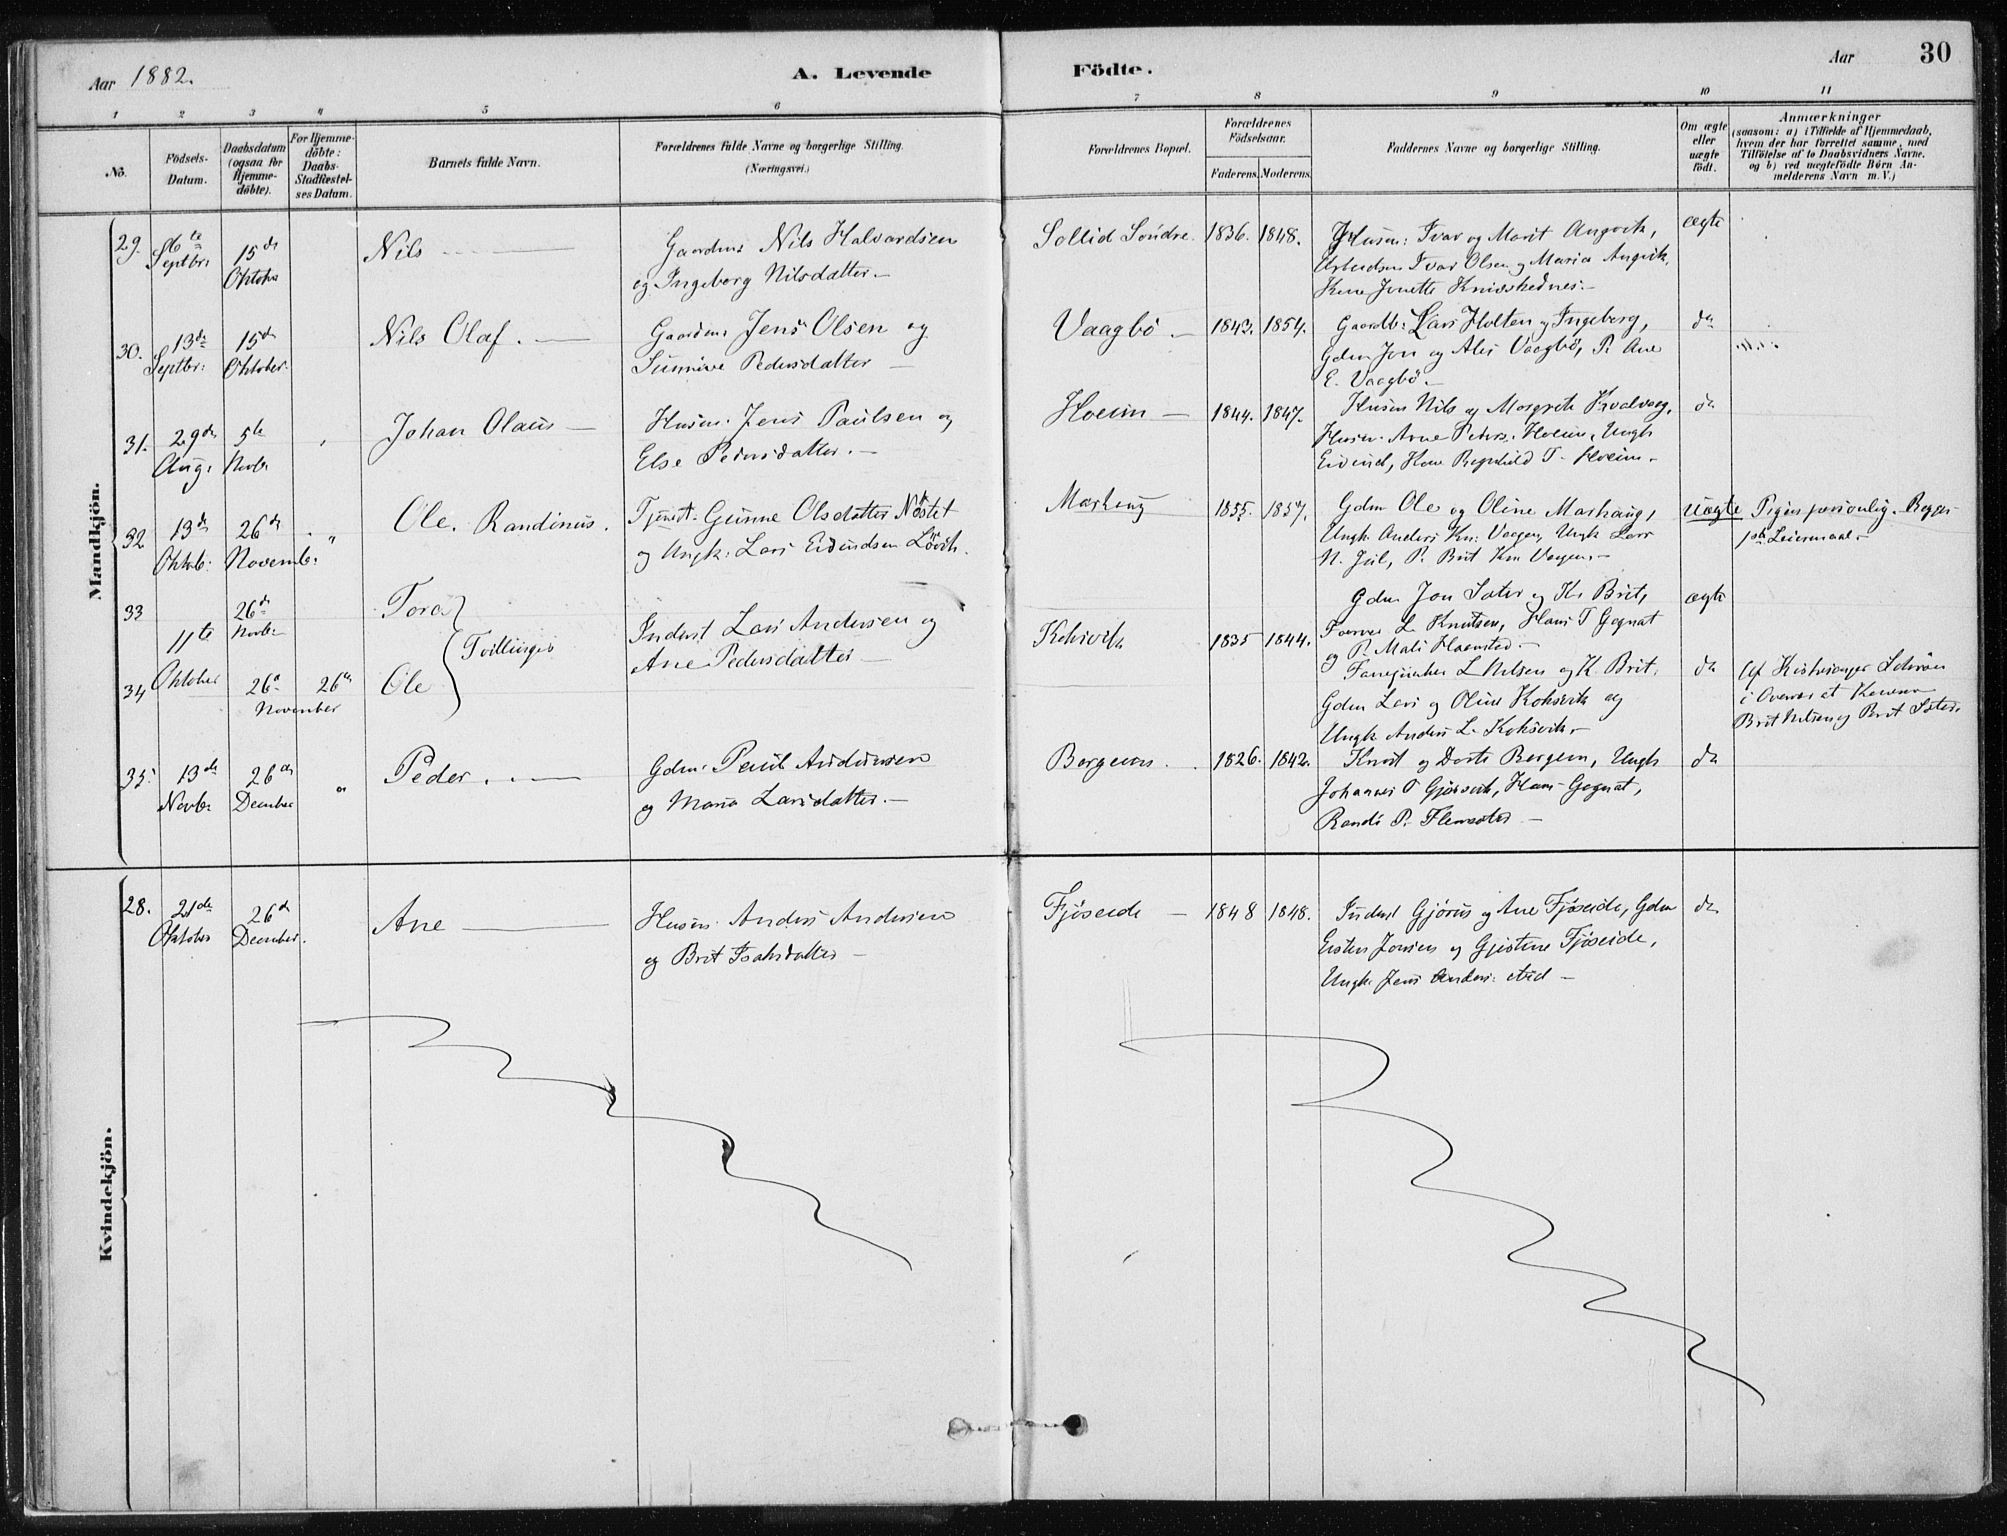 Aar 1882.
A. Levende
Födte.
Aar
30
1
2
3
4
5
6
7
8
9
10
11
No.
Födsels-
Datum.
Daabsdatum
(ogsaa for
Hjemme-
döbte).
For Hjemme-
döbte:
Daabs-
Stadfæstel-
ses Datum.
Barnets fulde Navn.
Forældrenes fulde Navne og borgerlige Stilling.
(Næringsvei.)
Forældrenes Bopæl.
Forældrenes
Födselsaar.
Faderens.
Moderens.
Faddernes Navne og borgerlige Stilling.
Om ægte
eller
uægte
födt.
Anmærkninger
(saasom: a) i Tilfælde af Hjemmedaab,
hvem der har forrettet samme, med
Tilföielse af to Daabsvidners Navne.
og b) ved uægtefödte Börn An-
melderens Navn m. V.)
Mandkjön.
29.
Septbr:
15de
Oktober
Nils
Gaardm: Nils Halvardsen
og Ingeborg Nilsdatter.
Sollid Söndre.
1836.
1848.
Husm: Ivar og Marit Angvik,
Ivar Olsen og Maria Angvik,
ægte
30.
13de
Septbr:
15de
Oktober.
Nils Olaf.
Gaardm: Jens Olsen og
Sunnive Pedersdatter
Vaagbö
1843.
1854.
Gaardb: Lars Holten og Ingeborg,
Gdm Jon og Ales Vaagbö, P. Ane
E. Vaagbö.
do
31.
29de
Aug.
5te
Novbr
Johan Olaus
Husm: Jens Paulsen og
Else Pedersdatter.
Hoeim
1844.
1847.
Husm Nils og Margrete Kvalvaag,
Husm. Arne Peters. Hoeim, Ungk
Eivind, Kone Ragnhild T. Hoeim.
do
32
13de
Oktob:
26de
Novembr:
Ole Randinus.
Tjenest: Gunne Olsdatter Nöstet
og Ungk: Lars Eivindsen Lövik.
Markaug
1855.
1857.
Gdm Ole og Oline Markaug,
Ungk Anders Kn: Vaagen, Ungk Lars
N. Jul, P. Brit Kn Vaagen.
uægte
Pigen personlig. Begges
1ste Leiermaal.
33
11te
Oktober
26de
Novbr
Tora
Tvillinger
Inderst Lars Andersen og
Ane Pedersdatter
Koksvik
1835
1844.
Gdm Jon Sæter og K. Brit,
Farver L. Knutsen, Hans T Gagnat
og P. Mali
ægte
34
26de
November
26de
Ole
L Nelsen og K. Brit.
Gdm Lars og Oline Koksvik og
Ungk Anders L. Koksvik.
do
Af Kirkesanger
i Overvær af Konerne
Brit Nelsen og Berit Sæter.
35.
13de
Novbr
26de
December
Peder.
Gdm. Paul Andersen
og Maria Larsdatter.
Bergem
1826.
1842.
Knut og Dorte Bergem, Ungk
Johannes O Gjörsvik, Hans Gagnat,
Randi P. Flemsæter
do
Kvindekjön.
28.
21de
Oktober
26de
December.
Ane
Husm: Anders Andersen
og Brit Isaksdatter
Fjöseide
1848
1848.
Inderst Gjörus og Ane Fjöseide, Gdm
Jonsen og Gjertine Fjöseide,
Ungk Jens Anders:
do